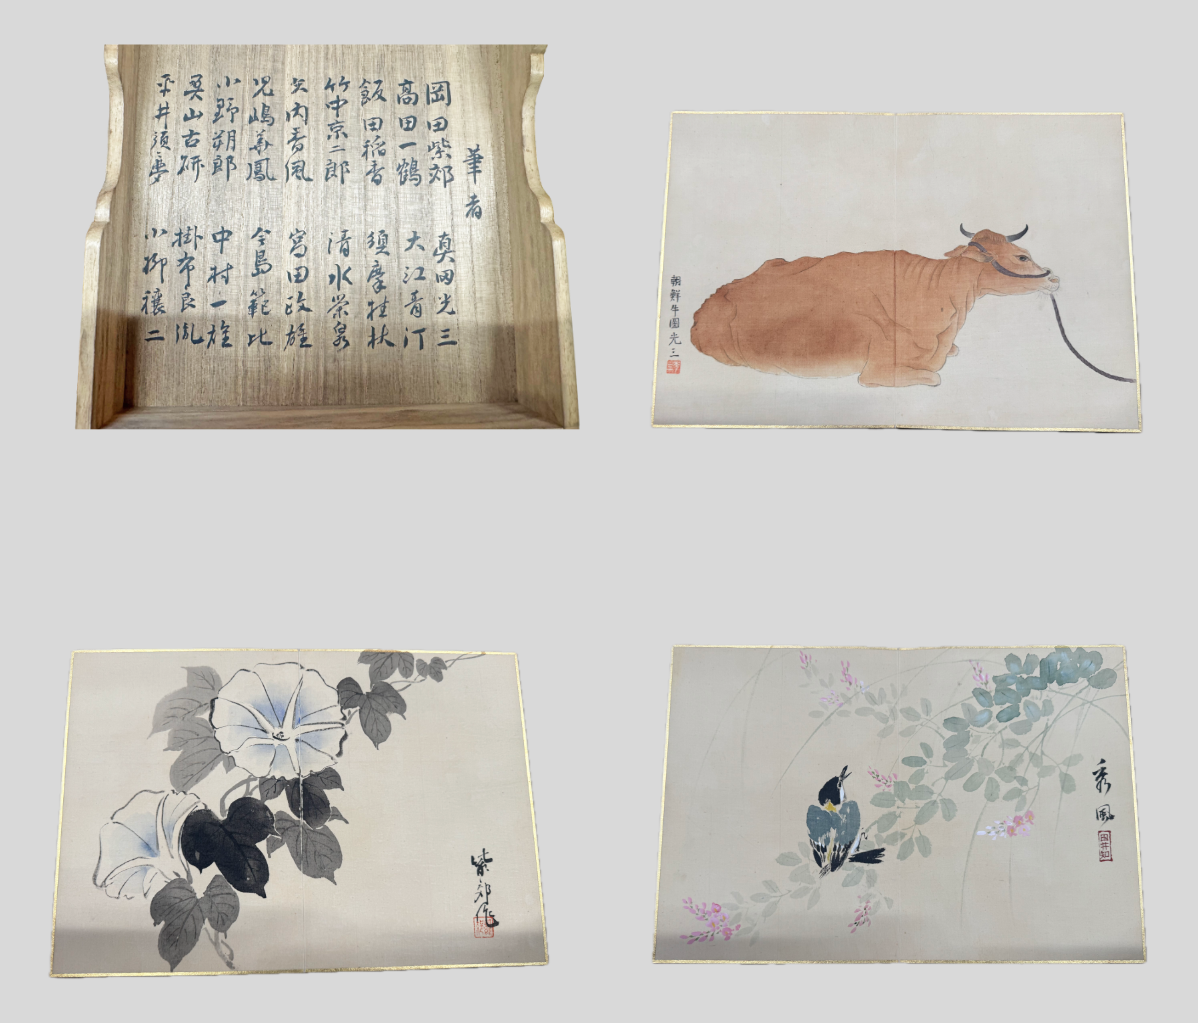 筆者
岡田紫郊 真田光三
高田一鶴 大江青汀
飯田稲香 須摩桂林
竹中京二郎 清水栄泉
矢内香風 富田政雄
児嶋華鳳 今島範比
小野朔郎 中村一雄
奥山古研 掛布良胤
平井須夢 小柳穣二
朝鮮牛図光三
紫郊作
秀風